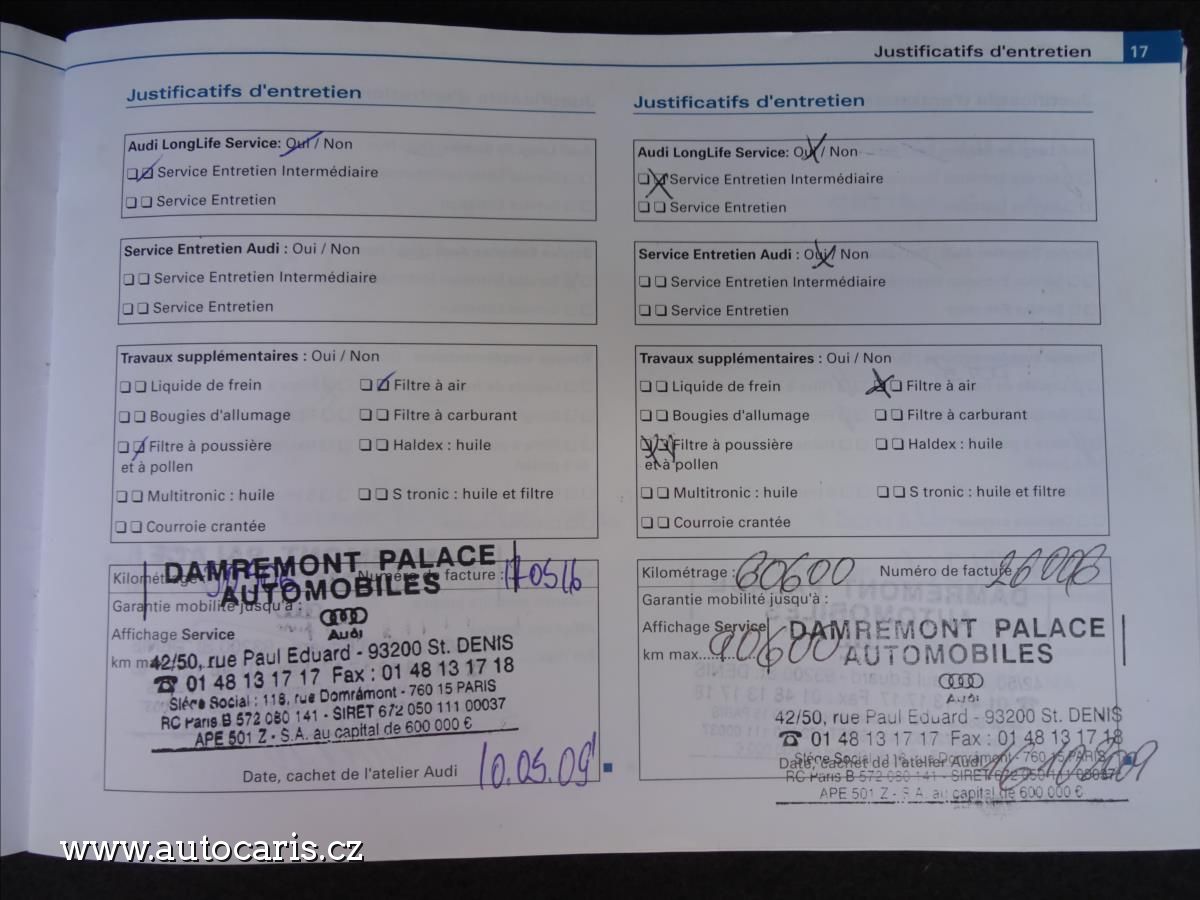 Justificatifs d'entretien 17
Justificatifs d'entretien
Audi LongLife Service: Oui / Non
Service Entretien Intermédiaire
Service Entretien
Service Entretien Audi : Oui / Non
Service Entretien Intermédiaire
Service Entretien
Travaux supplémentaires : Oui / Non
Liquide de frein Filtre à air
Bougies d'allumage Filtre à carburant
Filtre à poussière Haldex : huile
et à pollen
Multitronic : huile S tronic : huile et filtre
Courroie crantée
DAMREMONT PALACE
AUTOMOBILES
Kilométrage : Numéro de facture :
Garantie mobilité jusqu'à :
Audi
Affichage Service
km
42/50, rue Paul Eduard - 93200 St. DENIS
☎ 01 48 13 17 17 Fax : 01 48 13 17 18
Siége Social : 118, rue Domrámont - 760 15 PARIS
RC Paris B 572 080 141 - SIRET 672 050 111 00037
APE 501 Z - S.A. au capital de 600 000 €
Date, cachet de l'atelier Audi 10.05.09
Justificatifs d'entretien
Audi LongLife Service: Oui / Non
Service Entretien Intermédiaire
Service Entretien
Service Entretien Audi : Oui / Non
Service Entretien Intermédiaire
Service Entretien
Travaux supplémentaires : Oui / Non
Liquide de frein Filtre à air
Bougies d'allumage Filtre à carburant
Filtre à poussière Haldex : huile
et à pollen
Multitronic : huile S tronic : huile et filtre
Courroie crantée
Kilométrage : 60600 Numéro de facture :
Garantie mobilité jusqu'à :
Affichage Service
km max. 90600
DAMREMONT PALACE
AUTOMOBILES
Audi
42/50, rue Paul Eduard - 93200 St. DENIS
☎ 01 48 13 17 17 Fax : 01 48 13 17 18
Date, cachet de l'atelier Audi
APE 501 Z - S.A. au capital de 600 000 €
www.autocaris.cz